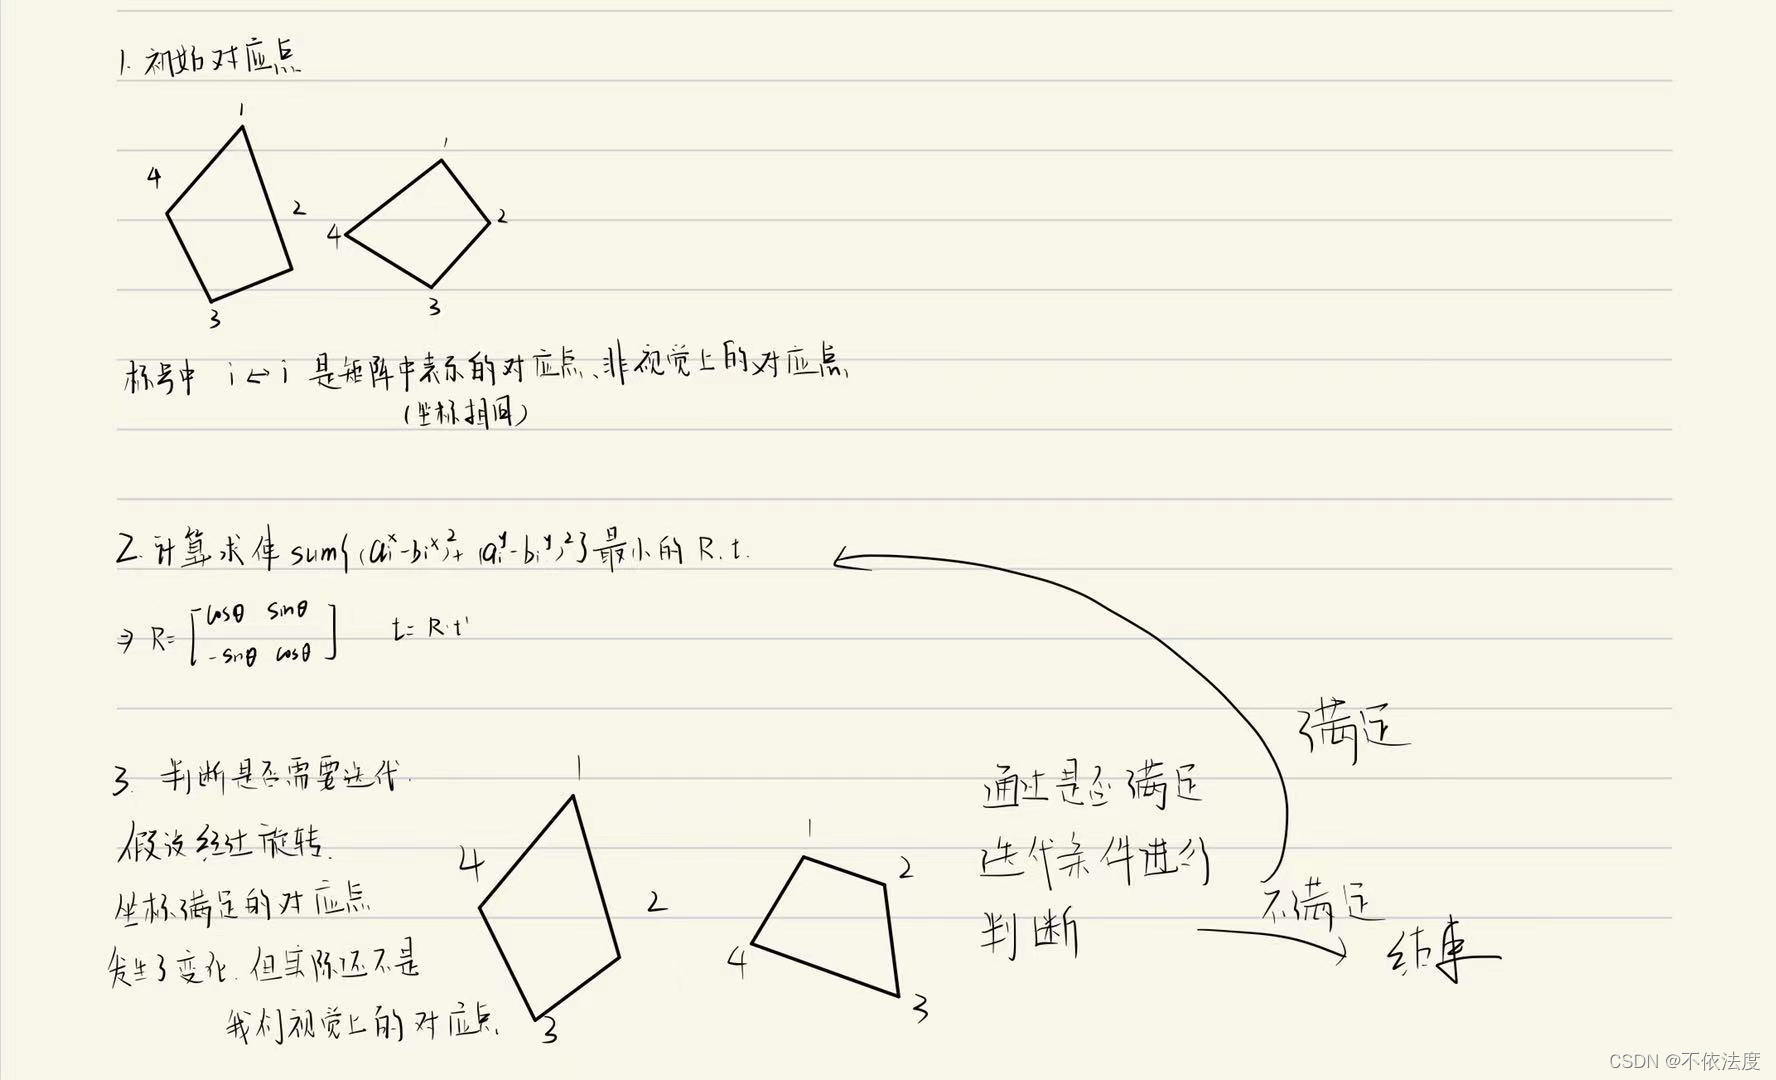 1. 初始对应点
1
4
2
3
1
2
4
3
标号中 i↔i 是矩阵中表示的对应点、非视觉上的对应点
(坐标相同)
2. 计算求使 sum{(aᵢˣ-bᵢˣ)²+(aᵢʸ-bᵢʸ)²}最小的 R.t.
⇒ R=[cosθ sinθ
-sinθ cosθ] t=R·t'
3. 判断是否需要迭代.
假设经过旋转.
坐标满足的对应点
发生了变化.但实际还不是
我们视觉上的对应点.
1
4
2
3
1
2
4
3
通过是否满足
迭代条件进行
判断
满足
不满足
结束
CSDN @不依法度